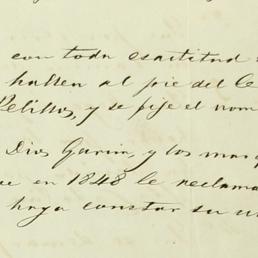 con toda exactitud
hallen al pie del Ce
Pelillos, y se fije el nom
Dios Garin, y los mar
ue en 1848 le reclama
haya constar su